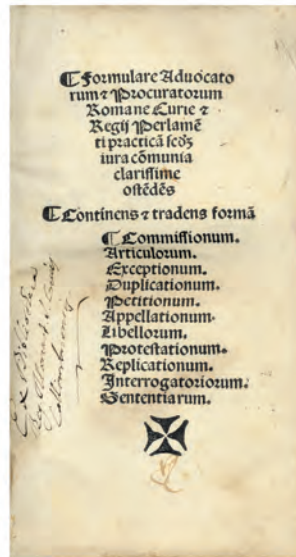 ¶ Formulare Aduocato
rum ⁊ Procuratorum
Romane Curie ⁊
Regij Perlamē
ti practicā ſcd'ꝫ
iura cōmunia
clariſſime
oſtēdēs
¶ Continens ⁊ tradens formā
¶ Commiſſionum.
Articulorum.
Exceptionum.
Duplicationum.
Petitionum.
Appellationum.
Libellorum.
Proteſtationum.
Replicationum.
Interrogatoriorum.
Sententiarum.
Ex Bibliotheca